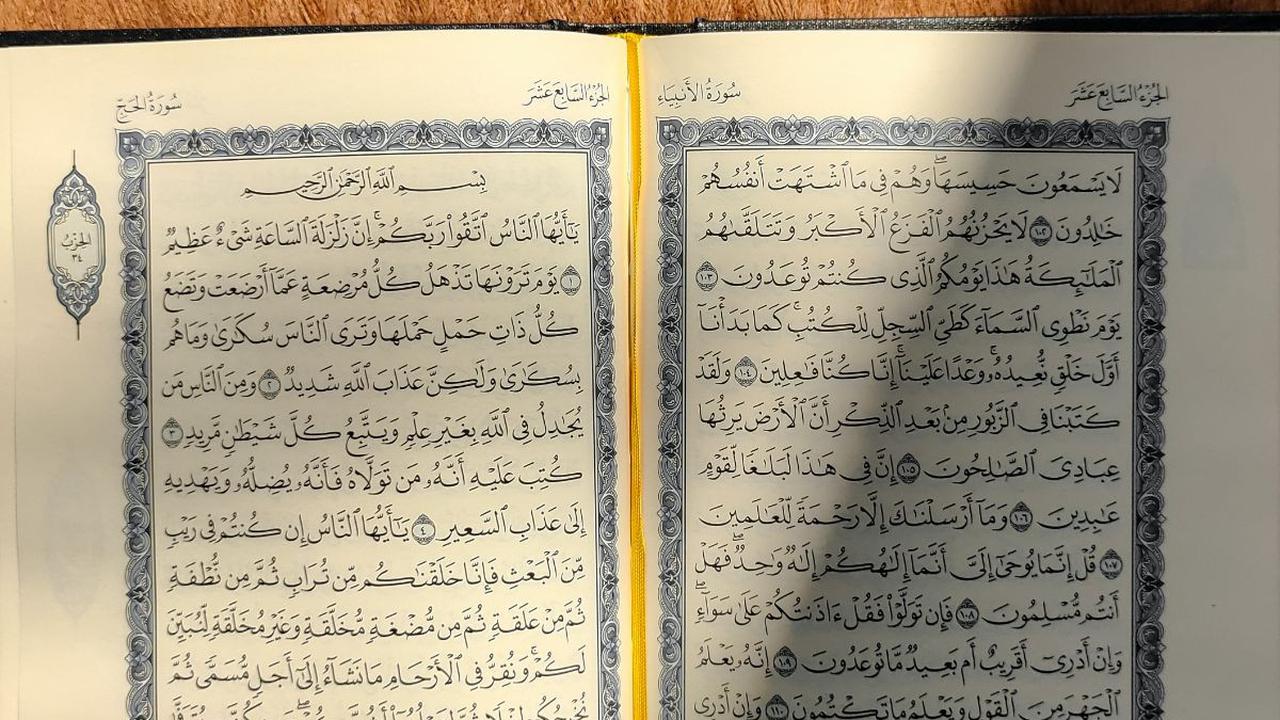 الجُزْءُ السَّابِعَ عَشَرَ
سُورَةُ الأَنبِيَاءِ
لَا يَسْمَعُونَ حَسِيسَهَاۖ وَهُمْ فِي مَا ٱشْتَهَتْ أَنفُسُهُمْ
خَٰلِدُونَ ١٠٢ لَا يَحْزُنُهُمُ ٱلْفَزَعُ ٱلْأَكْبَرُ وَتَتَلَقَّىٰهُمُ
ٱلْمَلَٰٓئِكَةُ هَٰذَا يَوْمُكُمُ ٱلَّذِي كُنتُمْ تُوعَدُونَ ١٠٣
يَوْمَ نَطْوِي ٱلسَّمَآءَ كَطَيِّ ٱلسِّجِلِّ لِلْكُتُبِۚ كَمَا بَدَأْنَآ
أَوَّلَ خَلْقٍ نُّعِيدُهُۥۚ وَعْدًا عَلَيْنَآۚ إِنَّا كُنَّا فَٰعِلِينَ ١٠٤ وَلَقَدْ
كَتَبْنَا فِي ٱلزَّبُورِ مِنۢ بَعْدِ ٱلذِّكْرِ أَنَّ ٱلْأَرْضَ يَرِثُهَا
عِبَادِيَ ٱلصَّٰلِحُونَ ١٠٥ إِنَّ فِي هَٰذَا لَبَلَٰغًا لِّقَوْمٍ
عَٰبِدِينَ ١٠٦ وَمَآ أَرْسَلْنَٰكَ إِلَّا رَحْمَةً لِّلْعَٰلَمِينَ
١٠٧ قُلْ إِنَّمَا يُوحَىٰٓ إِلَيَّ أَنَّمَآ إِلَٰهُكُمْ إِلَٰهٌ وَٰحِدٌۖ فَهَلْ
أَنتُم مُّسْلِمُونَ ١٠٨ فَإِن تَوَلَّوْا۟ فَقُلْ ءَاذَنتُكُمْ عَلَىٰ سَوَآءٍۖ
وَإِنْ أَدْرِيٓ أَقَرِيبٌ أَم بَعِيدٌ مَّا تُوعَدُونَ ١٠٩ إِنَّهُۥ يَعْلَمُ
ٱلْجَهْرَ مِنَ ٱلْقَوْلِ وَيَعْلَمُ مَا تَكْتُمُونَ ١١٠ وَإِنْ أَدْرِي
الجُزْءُ السَّابِعَ عَشَرَ
سُورَةُ الحَجِّ
بِسْمِ ٱللَّهِ ٱلرَّحْمَٰنِ ٱلرَّحِيمِ
يَٰٓأَيُّهَا ٱلنَّاسُ ٱتَّقُوا۟ رَبَّكُمْۚ إِنَّ زَلْزَلَةَ ٱلسَّاعَةِ شَيْءٌ عَظِيمٌ
١ يَوْمَ تَرَوْنَهَا تَذْهَلُ كُلُّ مُرْضِعَةٍ عَمَّآ أَرْضَعَتْ وَتَضَعُ
كُلُّ ذَاتِ حَمْلٍ حَمْلَهَا وَتَرَى ٱلنَّاسَ سُكَٰرَىٰ وَمَا هُم
بِسُكَٰرَىٰ وَلَٰكِنَّ عَذَابَ ٱللَّهِ شَدِيدٌ ٢ وَمِنَ ٱلنَّاسِ مَن
يُجَٰدِلُ فِي ٱللَّهِ بِغَيْرِ عِلْمٍ وَيَتَّبِعُ كُلَّ شَيْطَٰنٍ مَّرِيدٍ ٣
كُتِبَ عَلَيْهِ أَنَّهُۥ مَن تَوَلَّاهُ فَأَنَّهُۥ يُضِلُّهُۥ وَيَهْدِيهِ
إِلَىٰ عَذَابِ ٱلسَّعِيرِ ٤ يَٰٓأَيُّهَا ٱلنَّاسُ إِن كُنتُمْ فِي رَيْبٍ
مِّنَ ٱلْبَعْثِ فَإِنَّا خَلَقْنَٰكُم مِّن تُرَابٍ ثُمَّ مِن نُّطْفَةٍ
ثُمَّ مِنْ عَلَقَةٍ ثُمَّ مِن مُّضْغَةٍ مُّخَلَّقَةٍ وَغَيْرِ مُخَلَّقَةٍ لِّنُبَيِّنَ
لَكُمْۚ وَنُقِرُّ فِي ٱلْأَرْحَامِ مَا نَشَآءُ إِلَىٰٓ أَجَلٍ مُّسَمًّى ثُمَّ
الحِزْبُ
٣٤